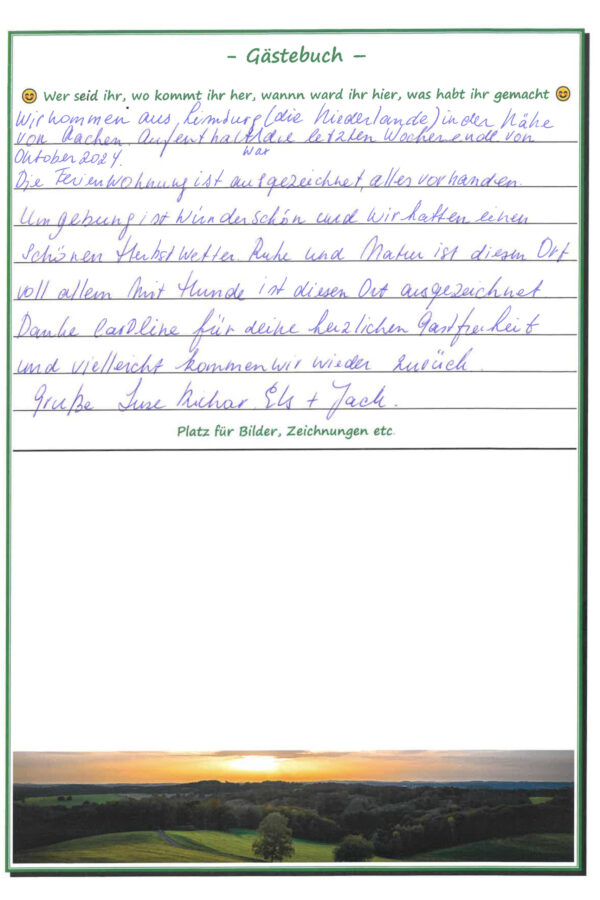 - Gästebuch –
Wer seid ihr, wo kommt ihr her, wannn ward ihr hier, was habt ihr gemacht
Wir kommen aus Limburg (die Niederlande) in der Nähe
von Aachen. Aufenthalt die letzten Wochenende von
war
Oktober 2024.
Die Ferienwohnung ist ausgezeichnet, alles vorhanden.
Umgebung ist wünderschön und wir hatten einen
schönen Herbstwetter. Ruhe und Natur ist diesen Ort
voll allem mit Hunde ist diesen Ort ausgezeichnet.
Danke Caroline für deine herzlichen Gastfreiheit
und vielleicht kommen wir wieder zurück.
Gruße Els + Jack.
Platz für Bilder, Zeichnungen etc.